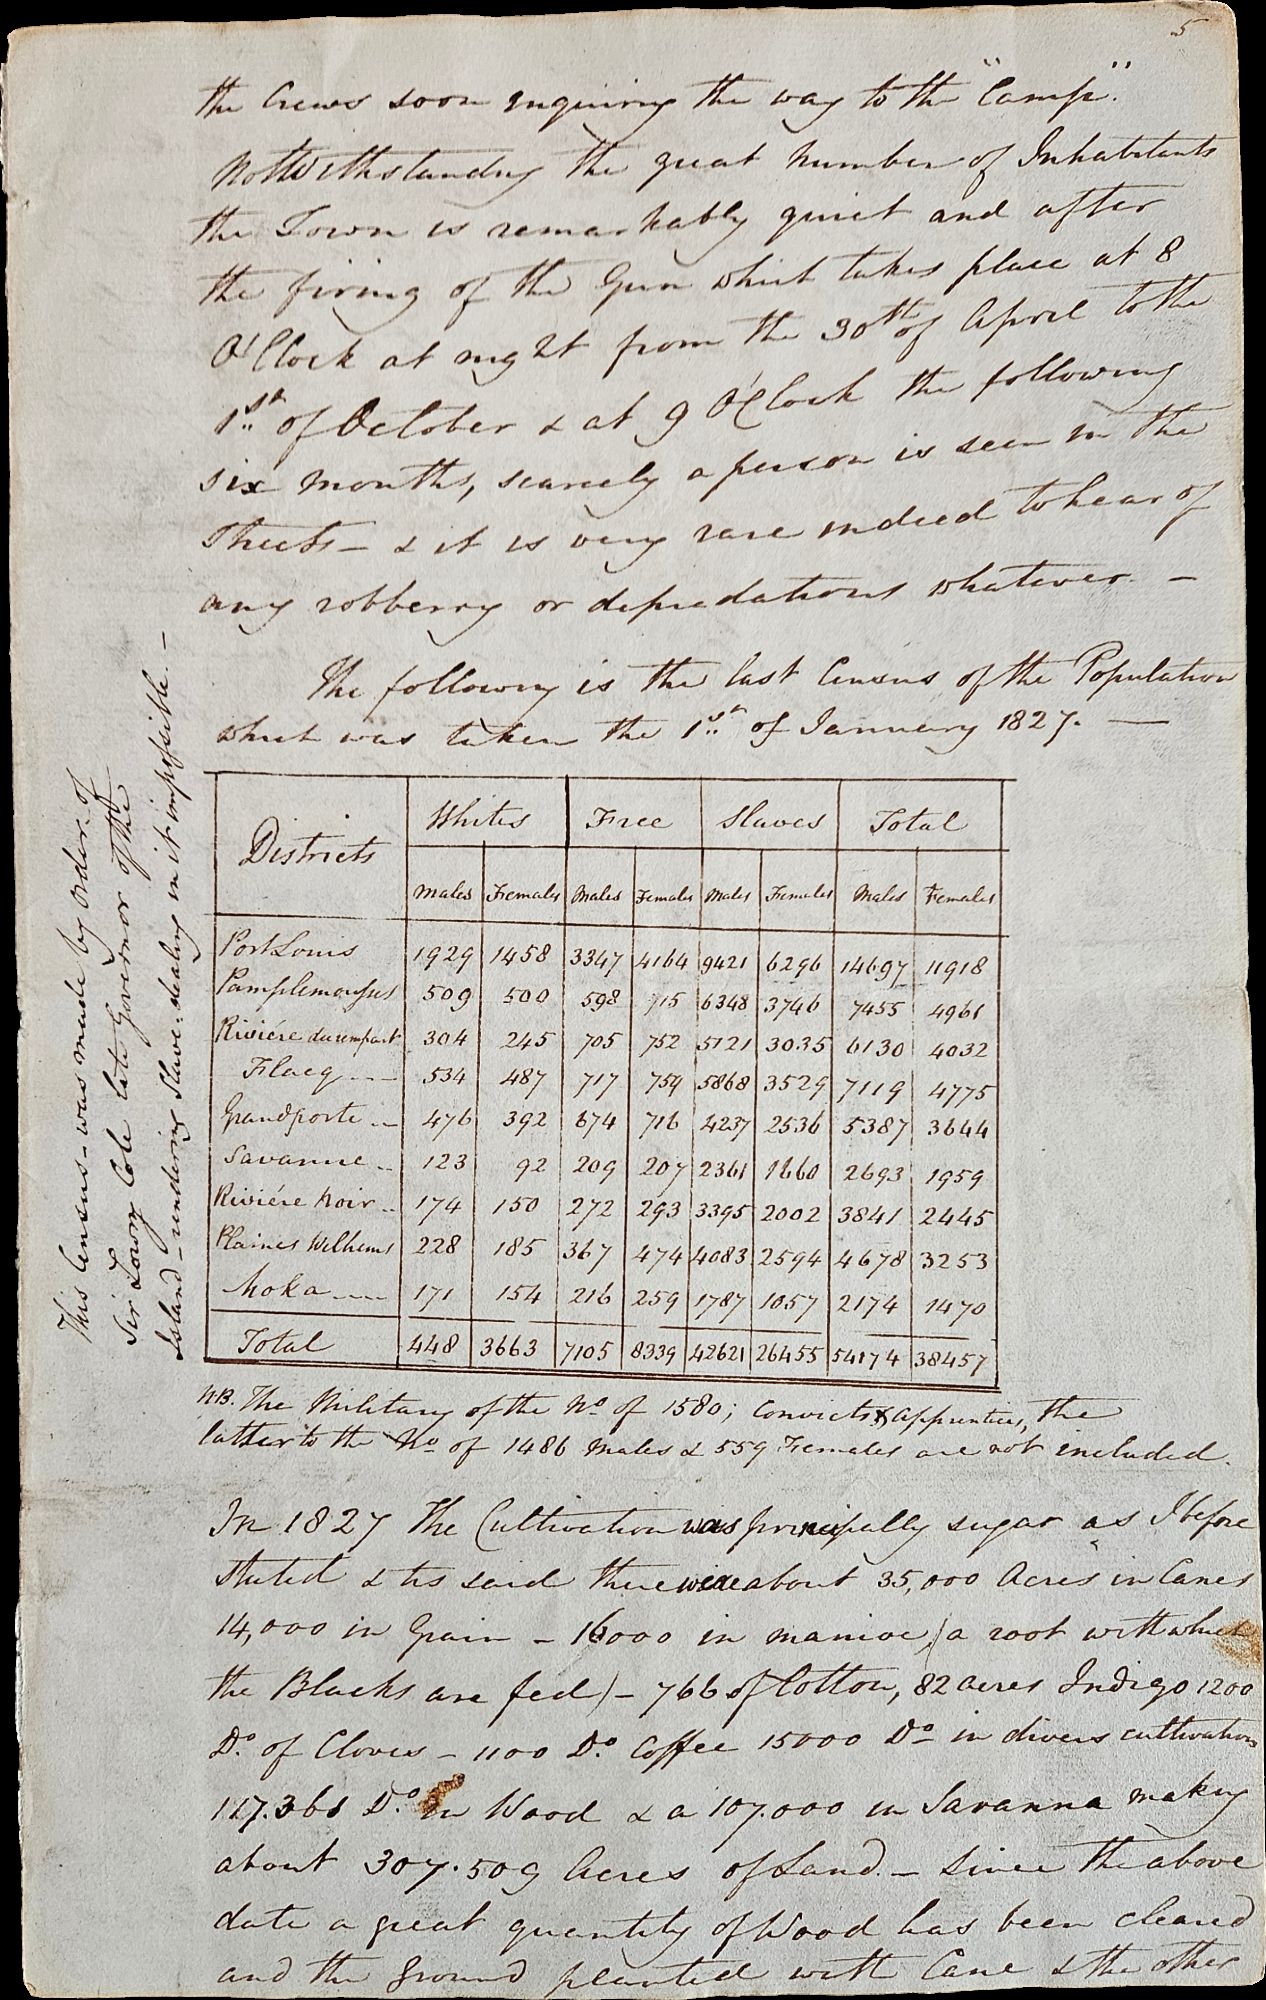 5
the Crews soon enquiring the way to the "Camp".
Notwithstanding the great number of Inhabitants
the Town is remarkably quiet and after
the firing of the Gun which takes place at 8
O'Clock at night from the 30th of April to the
1st of October & at 9 O'Clock the following
six months, scarcely a person is seen in the
Streets - & it is very rare indeed to hear of
any robberry or depredations whatever. -
The following is the last Census of the Population
which was taken the 1st of January 1827. —
Districts Whites Free Slaves Total
Males Females Males Females Males Females Males Females
Port Louis 1929 1458 3347 4164 9421 6296 14697 11918
Pamplemousses 509 500 598 715 6348 3746 7455 4961
Riviére du rempart 304 245 705 752 5121 3035 6130 4032
Flacq 534 487 717 759 5868 3529 7119 4775
Grandporte 476 392 674 716 4237 2536 5387 3644
Savanne 123 92 209 207 2361 1660 2693 1959
Riviére Noir 174 150 272 293 3395 2002 3841 2445
Plaines Wilhems 228 185 367 474 4083 2594 4678 3253
Moka 171 154 216 259 1787 1057 2174 1470
Total 448 3663 7105 8339 42621 26455 54174 38457
NB. The Military of the No of 1580; Convicts & apprentices, the
latter to the No of 1486 Males & 559 Females are not included.
This Census - was made by order of
Sir Lowry Cole late Governor of the
Island - rendering Slave-dealing in it impossible. -
In 1827 The Cultivation was principally sugar as I before
stated & tis said there were about 35,000 Acres in Canes
14,000 in Grain - 16000 in manioc (a root with which
the Blacks are fed) - 766 of Cotton, 82 acres Indigo 1200
Do. of Cloves - 1100 Do. Coffee 15000 Do in divers cultivation
117.361 Do. in Wood & a 107.000 in Savanna making
about 307.509 Acres of Land. - Since the above
date a great quantity of Wood has been cleared
and the ground planted with Cane & the other